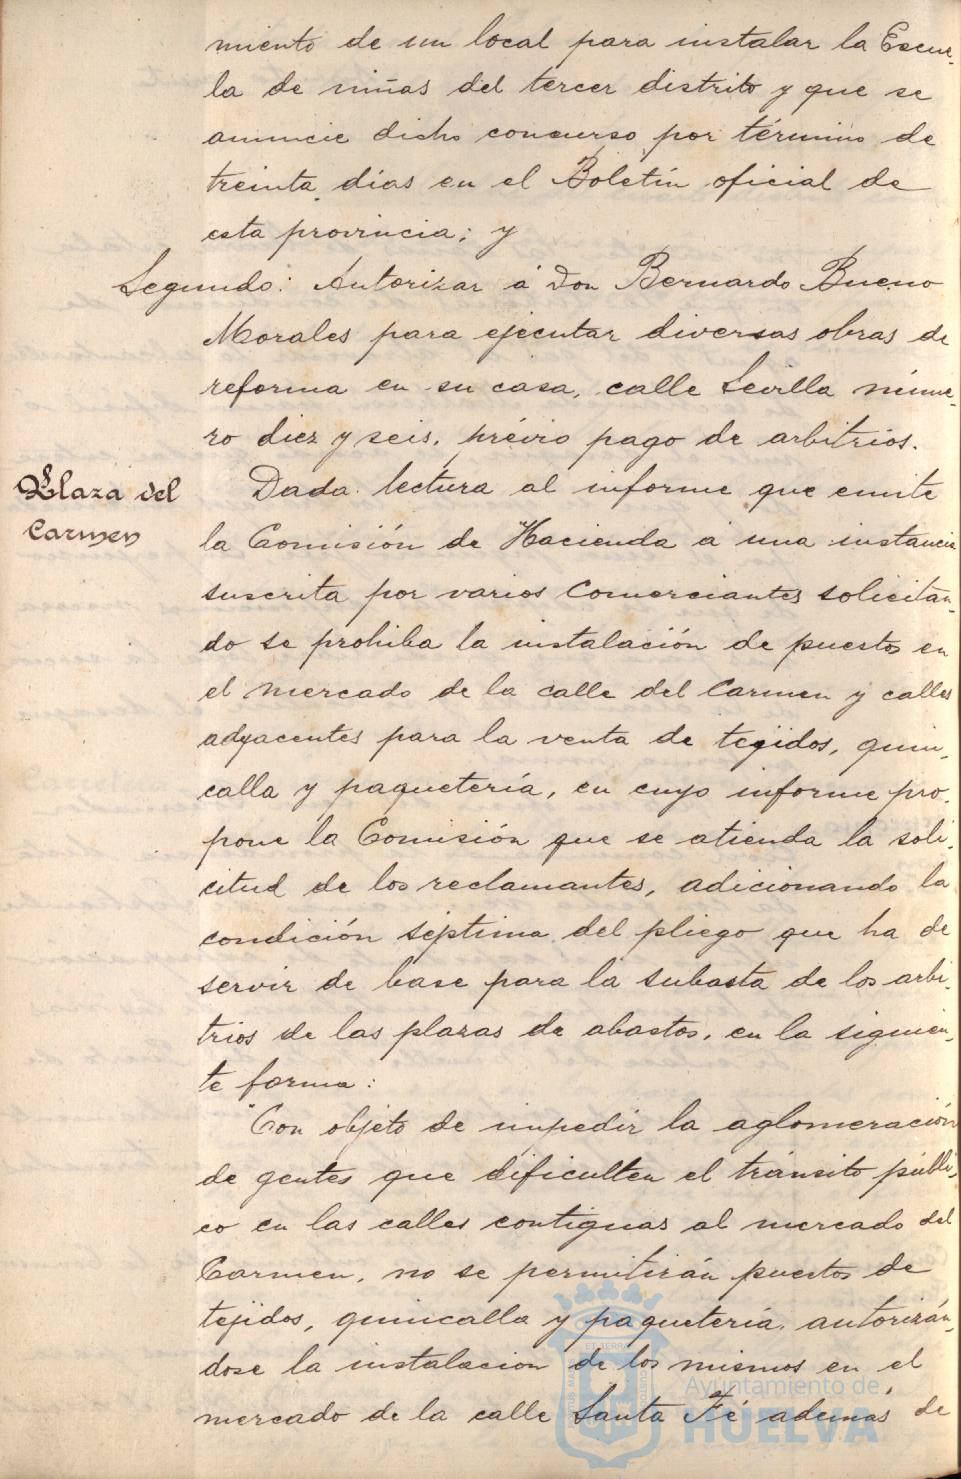 miento de un local para instalar la Escue-
la de niñas del tercer distrito y que se
anuncie dicho concurso por término de
treinta dias en el Boletín oficial de
esta provincia; y
Segundo: Autorizar á Don Bernardo Bueno
Morales para ejecutar diversas obras de
reforma en su casa, calle Sevilla núme-
ro diez y seis, prévio pago de arbitrios.
Plaza del
Carmen
Dada lectura al informe que emite
la Comisión de Hacienda á una instancia
suscrita por varios Comerciantes solicitan-
do se prohiba la instalación de puestos en
el mercado de la calle del Carmen y calles
adyacentes para la venta de tejidos, quin-
calla y paquetería, en cuyo informe pro-
pone la Comisión que se atienda la soli-
citud de los reclamantes, adicionando la
condición séptima del pliego que ha de
servir de base para la subasta de los arbi-
trios de las plazas de abastos, en la siguien-
te forma:
"Con objeto de impedir la aglomeración
de gentes que dificulten el tránsito públi-
co en las calles contiguas al mercado del
Carmen, no se permitirán puestos de
tejidos, quincalla y paquetería, autorizán-
dose la instalacion de los mismos en el
mercado de la calle Santa Fé ademas de
Ayuntamiento de
HUELVA